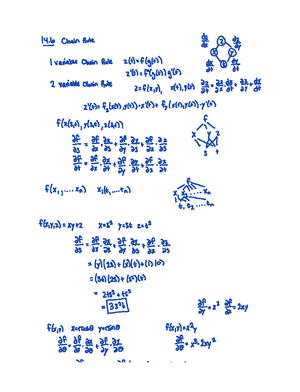 14.6 Chain Rule
1 variable Chain Rule z(t) = f(g(t))
z'(t) = f'(g(t)) g'(t)
2 variable Chain Rule z = f(x,y), x(t), y(t) dz/dt = ∂z/∂x dx/dt + ∂z/∂y dy/dt
z'(t) = fx(x(t), y(t)) · x'(t) + fy(x(t), y(t)) · y'(t)
f(x(s,t), y(s,t), z(s,t))
∂f/∂s = ∂f/∂x · ∂x/∂s + ∂f/∂y · ∂y/∂s + ∂f/∂z · ∂z/∂s
∂f/∂t = ∂f/∂x · ∂x/∂t + ∂f/∂y · ∂y/∂t + ∂f/∂z · ∂z/∂t
f
x y z
s t
f(x₁, .... xₙ) x₁(t, ... tₙ)
f
x₁ x₂ ... xₙ
t₁ t₂ ...... tₙ
f(x,y,z) = xy+z x=s² y=st z=t²
∂f/∂s = ∂f/∂x · ∂x/∂s + ∂f/∂y · ∂y/∂s + ∂f/∂z · ∂z/∂s
= (y)(2s) + (x)(t) + (1)(0)
= (st)(2s) + (s²)(t)
= 2ts² + ts²
= 3s²t
∂f/∂y = x² ∂f/∂x = 2xy
f(x,y) x=rcosθ y=rsinθ f(x,y) = x²y
∂f/∂θ = ∂f/∂x · ∂x/∂θ + ∂f/∂y · ∂y/∂θ